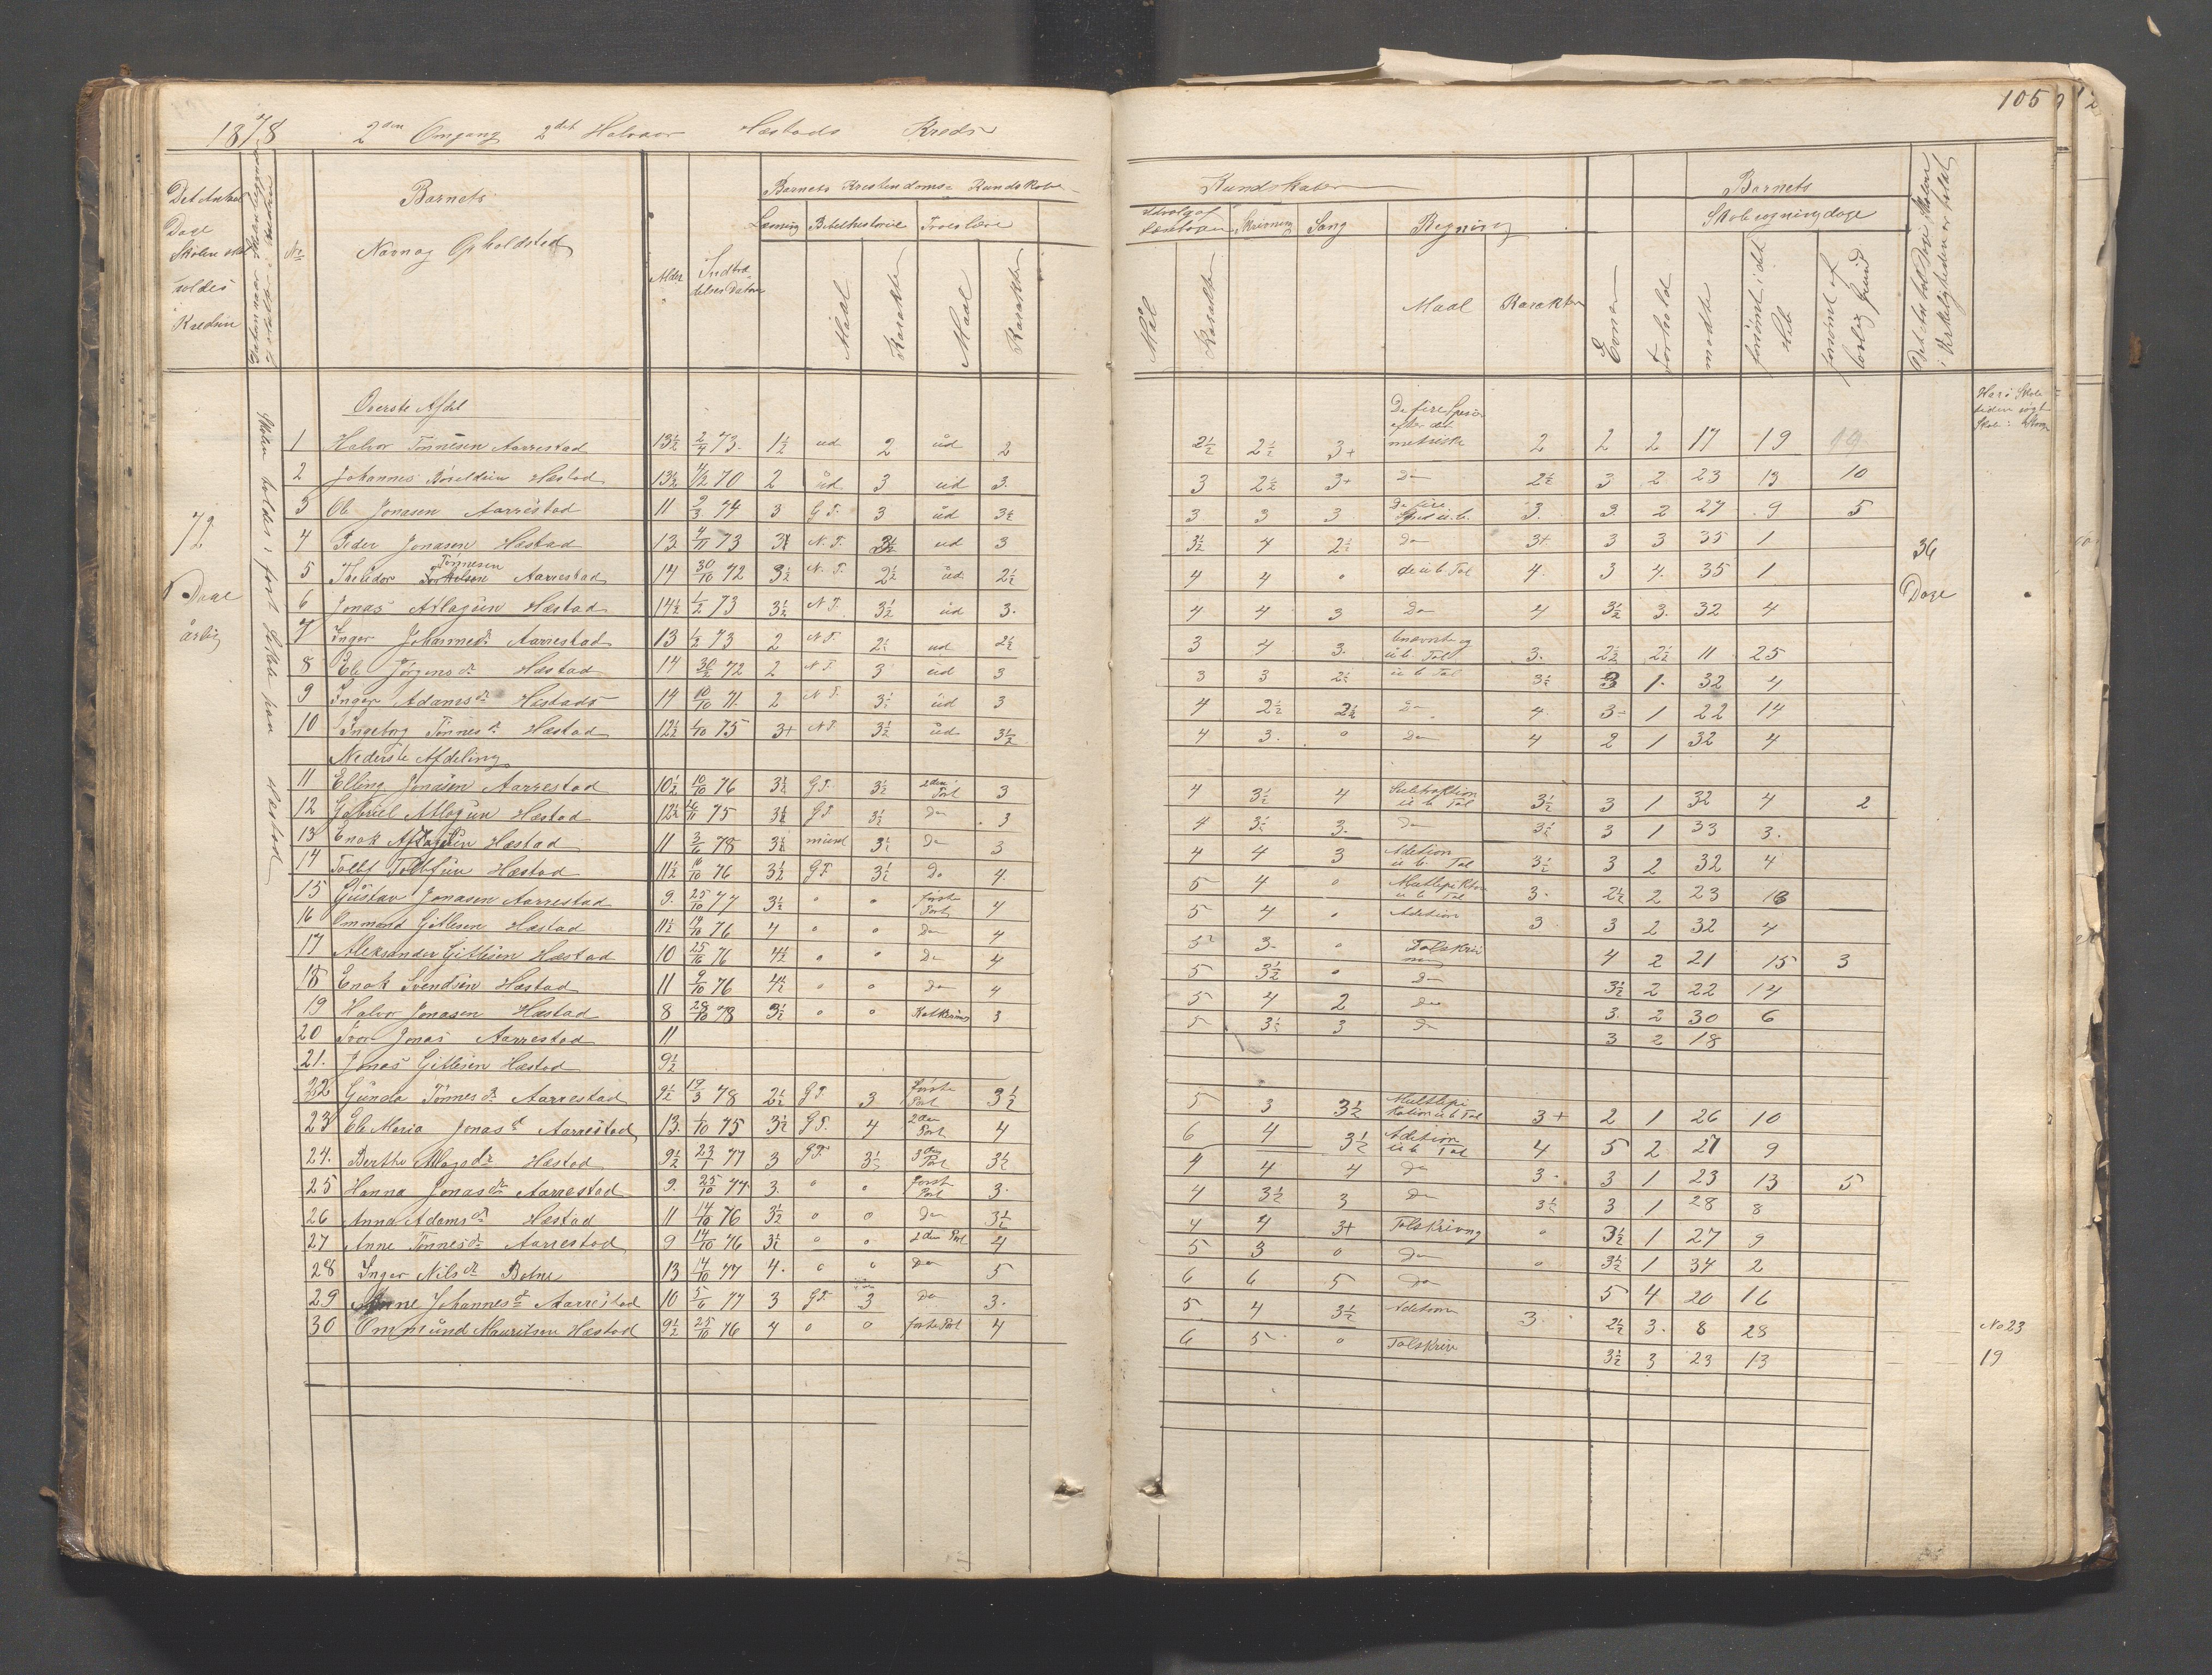 1878 2den Omgang 2det Halvaar Hæstads Kreds
105
Det Antal Dage Skolen skal holdes i Kredsen
No
Barnets
Navn og Opholdsted
Alder
Indtrædelses Datum
Barnets Kristendoms Kundskaber
Læsning Bibelhistorie Troeslære
Maal Karakter Maal Karakter
Kundskaber
Udvalg af Læsebogen Skrivning Sang Regning
Mål Karakter Maal Karakter
Evner
Forhold
Barnets
Skolesøgningsdage
mødte
forsømt i det Hele
forsømt af lovlig Grund
Det Antal Dage Skolen i Virkeligheden er holdt
Skolen holdes i fast Lokale paa Hæstad
72 Dage årlig
36 Dage
Øverste Afdel
1 Halvor Tønnesen Aarrestad 13½ 2/4 73. 1½ ud 2 ud 2 2½ 2½ 3+ De fire Specier efter det metriske 2 2 2 17 19 19
2 Johannes Bårdsen Hæstad 13½ 4/2 70 2 ud 3 ud 3. 3 2½ 3+ Do 2½ 3 2 23 13 10
3 Ole Jonasen Aarrestad 11 2/3 74 3 G.T. 3 ud 3½ 3 3 3 De fire Spes i u.b. 3. 3. 2 27 9 5
4 Peder Jonasen Hæstad 13 4/11 73 3½ N.T. 3½ ud 3 3½ 4 2½ Do 3+ 3 3 35 1
5 Theodor Tønnesen Aarrestad 14 30/10 72 3½ N.T. 2½ ud 2½ 4 4 0 de u b Tal 4. 3 4. 35 1
6 Jonas Atlagsen Hæstad 14½ 1/2 73 3½ N.T. 3½ ud 3. 4 4 3 Do 4 3½ 3. 32 4
7 Inger Johannesdr Aarrestad 13 1/2 73 2 N.T. 2½ ud 2½ 3 4 3. benævnte og u.b. Tal 3. 2½ 2½ 11 25
8 Ele Jørgensdr Hæstad 14 30/2 72 2 N.T. 3 ud 3 3 3 2½ u b Tal 3½ 3 1. 32 4
9 Inger Adamsdr Hæstads 14 10/10 71. 2 N.T. 3½ ud 3 4 2½ 2½ Do 4 3 1 22 14
10 Ingeborg Tønnesdr Hæstad 12½ 1/10 75 3+ N.T. 3½ ud 3½ 4 3. 0 Do 4 2 1 32 4
Nederste Afdeling
11 Elling Jonasen Aarrestad 10½ 10/10 76 3½ G.T. 3½ 2den Part 3 4 3½ 4 Subtraktion u b Tal 3½ 3 1 32 4 2
12 Gabriel Atlagsen Hæstad 12½ 26/11 75 3½ G.T. 3½ Do 3 4 3½ 3. Do 3½ 3 1 33 3.
13 Enok Atlagsen Hæstad 11 3/6 78 3½ mund 3½ Do 3 4 4 3 Adition u b. Tal 3½ 3 2 32 4
14 Tollef Tollefsen Hæstad 11½ 10/10 76 3½ G.T. 3½ Do 4. 5 4 0 u b Tal 3. 2½ 2 23 13
15 Gustav Jonasen Aarrestad 9. 25/10 77 3½ 0 0 første Part 4 5 4 0 Adition 3 3 2 32 4
16 Ommund Gitlesen Hæstad 11½ 19/10 76 4 0 0 Do 4 5 3. 0 Talskrivning 4 2 21 15 3
17 Aleksander Gitlesen Hæstad 10 25/10 76 4½ 0 0 Do 4 5 3½ 0 Do 3½ 2 22 14
18 Enok Svendsen Hæstad 11 9/10 76 4½ 0 0 Do 4 5 4 2 Do 3. 2 30 6
19 Halvor Jonasen Hæstad 8 28/10 78 3½ 0 0 3 5 3½ 3 Do 3 2 18
20 Ivor Jonas Aarrestad 11
21. Jonas Gitlesen Hæstad 9½
22 Gunda Tønnesdr Aarrestad 9½ 19/3 78 2½ G.T. 3 Første Part 3½ 5 3 3½ Multlepikation u b Tal 3+ 2 1 26 10
23 Ele Maria Jonasd Aarrestad 13. 1/10 75 3½ G.T. 4 2den Part 4 6 4 3½ Adition u b Tal 4 5 2 27 9
24. Berthe Atlagsdr Hæstad 9½ 23/1 77 3 G.T. 3½ 3den Part 3½ 4 4 4 Do 3. 3 1 23 13 5
25 Hanna Jonasdr Aarrestad 9. 25/10 77 3. 0 0 første Part 3. 4 3½ 3 Do 3½ 3 1 28 8
26 Anna Adamsdr Hæstad 11 14/10 76 3½ 0 0 Do 3½ 4 4 3+ Talskrivng 0 3½ 1 27 9
27 Anne Tønnesdr Aarrestad 9 14/10 76 3½ 0 0 2den Part 4 5 3 0 Do 0 3½ 1 34 2
28 Inger Nilsdr Botne 13 14/10 77 4. 0 0 Do 5 6 6 5 Do 5 4 20 16
29 Anne Johannesdr Aarrestad 10 5/6 77 3 G.T. 3 Do 3. 5 4 3½ Adition 3. 2½ 3. 8 28 No 23
30 Ommund Mauritsen Hæstad 9½ 25/10 76 4 0 0 første Part 4 6 5 0 Talskriv 3½ 3 23 13 19